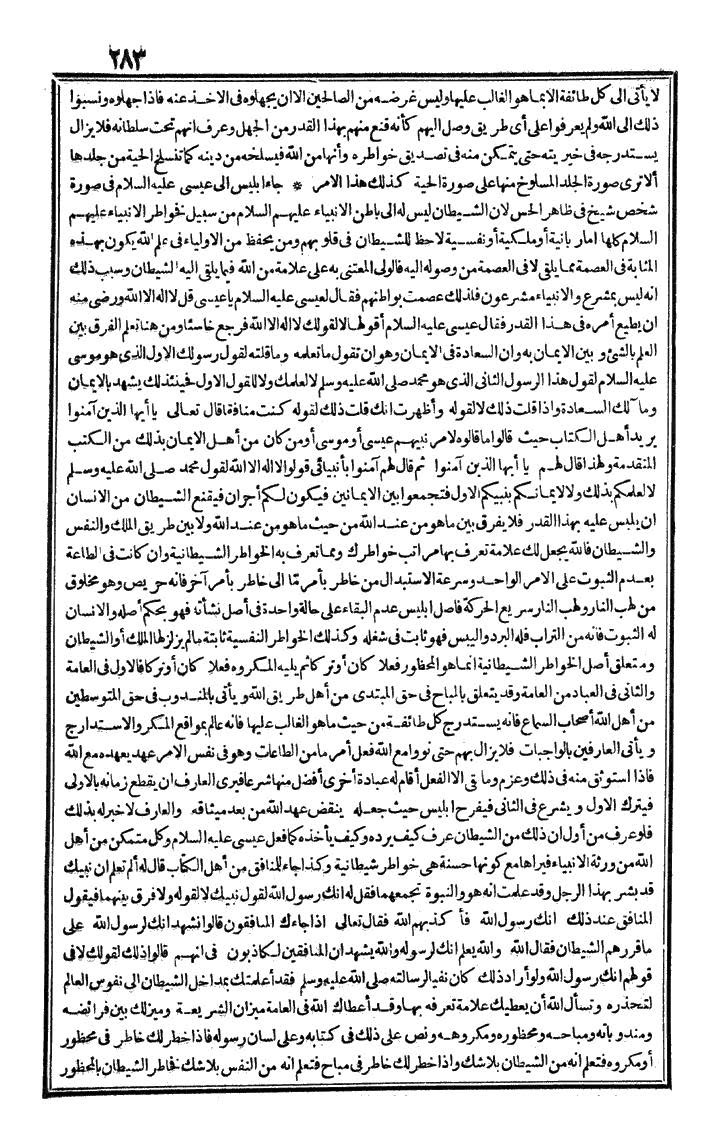 ٢٨٣
لا يأتى الى كل طائفة الا بما هو الغالب عليها وليس غرضه من الصالحين الا ان يجهلوه فى الاخذ عنه فاذا جهلوه ونسبوا
ذلك الى الله ولم يعرفوا على أى طريق وصل اليهم كأنه قنع منهم بهذا القدر من الجهل وعرف انهم تحت سلطانه فلا يزال
يستدرجه فى خيريته حتى يتمكن منه فى تصديق خواطره وأنها من الله فيسلخه من دينه كما تنسلخ الحية من جلدها
ألا ترى صورة الجلد المسلوخ منها على صورة الحية كذلك هذا الامر * جاء ابليس الى عيسى عليه السلام فى صورة
شخص شيخ فى ظاهر الحس لان الشيطان ليس له الى باطن الانبياء عليهم السلام من سبيل فخواطر الانبياء عليهم
السلام كلها اما ربانية أو ملكية أو نفسية لاحظ للشيطان فى قلوبهم ومن يحفظ من الاولياء فى علم الله يكون بهذه
المثابة فى العصمة مما يلقى لا فى العصمة من وصوله اليه فالولى المعتنى به على علامة من الله فيما يلقى اليه الشيطان وسبب ذلك
انه ليس بمشرع والانبياء مشرعون فلذلك عصمت بواطنهم فقال لعيسى عليه السلام يا عيسى قل لا اله الا الله ورضى منه
ان يطيع أمره فى هذا القدر فقال عيسى عليه السلام أقولها لا لقولك لا اله الا الله فرجع خاسئا ومن هنا تعلم الفرق بين
العلم بالشئ وبين الايمان به وان السعادة فى الايمان وهو ان تقول ما تعلمه وما قلته لقول رسولك الاول الذى هو موسى
عليه السلام لقول هذا الرسول الثانى الذى هو محمد صلى الله عليه وسلم لا لعلمك ولا للقول الاول فحينئذ لك يشهد بالايمان
ومآلك السعادة واذا قلت ذلك لا لقوله وأظهرت انك قلت ذلك لقوله كنت منافقا قال تعالى يا أيها الذين آمنوا
يريد أهل الكتاب حيث قالوا ما قالوه لامر نبيهم عيسى أو موسى أو من كان من أهل الايمان بذلك من الكتب
المتقدمة ولهذا قال لهم يا أيها الذين آمنوا ثم قال لهم آمنوا بأنبيائى قولوا لا اله الا الله لقول محمد صلى الله عليه وسلم
لا لعلمكم بذلك ولا لايمانكم بنبيكم الاول فتجمعوا بين الايمانين فيكون لكم أجران فيقنع الشيطان من الانسان
ان يلبس عليه بهذا القدر فلا يفرق بين ما هو من عند الله من حيث ما هو من عند الله ولا بين طريق الملك والنفس
والشيطان فالله يجعل لك علامة تعرف بها مراتب خواطرك ومما تعرف به الخواطر الشيطانية وان كانت فى الطاعة
بعدم الثبوت على الامر الواحد وسرعة الاستبدال من خاطر بأمر مّا الى خاطر بأمر آخر فانه حريص وهو مخلوق
من لهب النار ولهب النار سريع الحركة فاصل ابليس عدم البقاء على حالة واحدة فى أصل نشأته فهو بحكم أصله والانسان
له الثبوت فانه من التراب فله البرد واليبس فهو ثابت فى شغله وكذلك الخواطر النفسية ثابتة ما لم يزلزلها الملك أو الشيطان
ومتعلق أصل الخواطر الشيطانية انما هو المحظور فعلا كان أو تركا ثم يليه المكروه فعلا كان أو تركا فالاول فى العامة
والثانى فى العباد من العامة وقد يتعلق بالمباح فى حق المبتدى من أهل طريق الله ويأتى بالمندوب فى حق المتوسطين
من أهل الله أصحاب السماع فانه يستدرج كل طائفة من حيث ما هو الغالب عليها فانه عالم بمواقع المكر والاستدراج
ويأتى العارفين بالواجبات فلا يزال بهم حتى نووا مع الله فعل أمر ما من الطاعات وهو فى نفس الامر عهد يعهده مع الله
فاذا استوثق منه فى ذلك وعزم وما بقى الا الفعل أقام له عبادة أخرى أفضل منها شرعا فيرى العارف ان يقطع زمانه بالاولى
فيترك الاول ويشرع فى الثانى فيفرح ابليس حيث جعله ينقض عهد الله من بعد ميثاقه والعارف لا خبر له بذلك
فلو عرف من أول ان ذلك من الشيطان عرف كيف يرده وكيف يأخذه كما فعل عيسى عليه السلام وكل متمكن من أهل
الله من ورثة الانبياء فيراها مع كونها حسنة هى خواطر شيطانية وكذا جاء للمنافق من أهل الكتاب قال له ألم تعلم ان نبيك
قد بشر بهذا الرجل وقد علمت انه هو والنبوة تجمعهما فقل له انك رسول الله لقول نبيك لا لقوله ولا فرق بينهما فيقول
المنافق عند ذلك انك رسول الله فأكذبهم الله فقال تعالى اذا جاءك المنافقون قالوا نشهد انك لرسول الله على
ما قررهم الشيطان فقال الله والله يعلم انك لرسوله والله يشهد ان المنافقين لكاذبون فى انهم قالوا ذلك لقولك لا فى
قولهم انك رسول الله ولو أراد ذلك كان نفيا لرسالته صلى الله عليه وسلم فقد أعلمتك بمداخل الشيطان الى نفوس العالم
لتحذره وتسأل الله أن يعطيك علامة تعرفه بها وقد أعطاك الله فى العامة ميزان الشريعة وميزلك بين فرائضه
ومندوباته ومباحه ومحظوره ومكروهه ونص على ذلك فى كتابه وعلى لسان رسوله فاذا خطر لك خاطر فى محظور
أو مكروه فتعلم انه من الشيطان بلا شك واذا خطر لك خاطر فى مباح فتعلم انه من النفس بلا شك فخاطر الشيطان بالمحظور